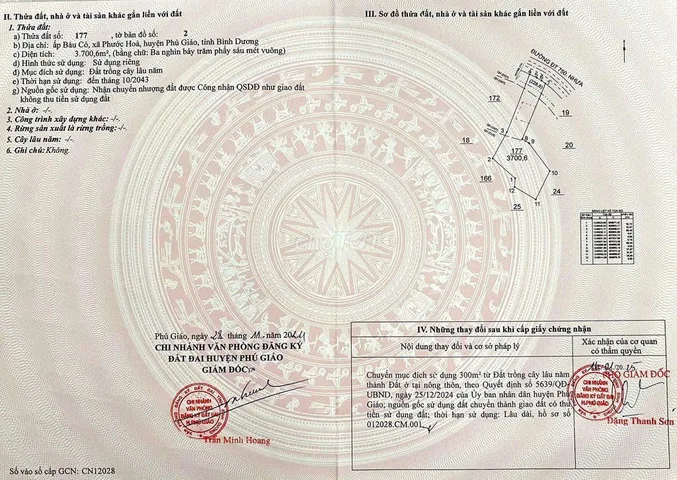 II. Thửa đất, nhà ở và tài sản khác gắn liền với đất
1. Thửa đất:
a) Thửa đất số: 177 , tờ bản đồ số: 2
b) Địa chỉ: ấp Bàu Cỏ, xã Phước Hoà, huyện Phú Giáo, tỉnh Bình Dương
c) Diện tích: 3.700,6m², (bằng chữ: Ba nghìn bảy trăm phẩy sáu mét vuông)
d) Hình thức sử dụng: Sử dụng riêng
đ) Mục đích sử dụng: Đất trồng cây lâu năm
e) Thời hạn sử dụng: đến tháng 10/2043
g) Nguồn gốc sử dụng: Nhận chuyển nhượng đất được Công nhận QSDĐ như giao đất
không thu tiền sử dụng đất
2. Nhà ở: -/-
3. Công trình xây dựng khác: -/-
4. Rừng sản xuất là rừng trồng: -/-
5. Cây lâu năm: -/-
6. Ghi chú: Không.
Phú Giáo, ngày 28 tháng 11 năm 2024
CHI NHÁNH VĂN PHÒNG ĐĂNG KÝ
ĐẤT ĐAI HUYỆN PHÚ GIÁO
GIÁM ĐỐC
CHI NHÁNH
VĂN PHÒNG
ĐĂNG KÝ ĐẤT ĐAI
H. PHÚ GIÁO
Trần Minh Hoang
Số vào sổ cấp GCN: CN12028
III. Sơ đồ thửa đất, nhà ở và tài sản khác gắn liền với đất
ĐƯỜNG ĐT 750 NHỰA
172
19
18
3
8
9
20
177
3700,6
2
10
166
1
24
25
11
IV. Những thay đổi sau khi cấp giấy chứng nhận
Nội dung thay đổi và cơ sở pháp lý
Xác nhận của cơ quan
có thẩm quyền
Chuyển mục đích sử dụng 300m² từ Đất trồng cây lâu năm
thành Đất ở tại nông thôn, theo Quyết định số 5639/QĐ-
UBND, ngày 25/12/2024 của Ủy ban nhân dân huyện Phú
Giáo; nguồn gốc sử dụng đất chuyển thành giao đất có thu
tiền sử dụng đất; thời hạn sử dụng: Lâu dài, hồ sơ số
012028.CM.001
PHÓ GIÁM ĐỐC
CHI NHÁNH
VĂN PHÒNG
ĐĂNG KÝ ĐẤT ĐAI
H. PHÚ GIÁO
Đặng Thanh Sơn